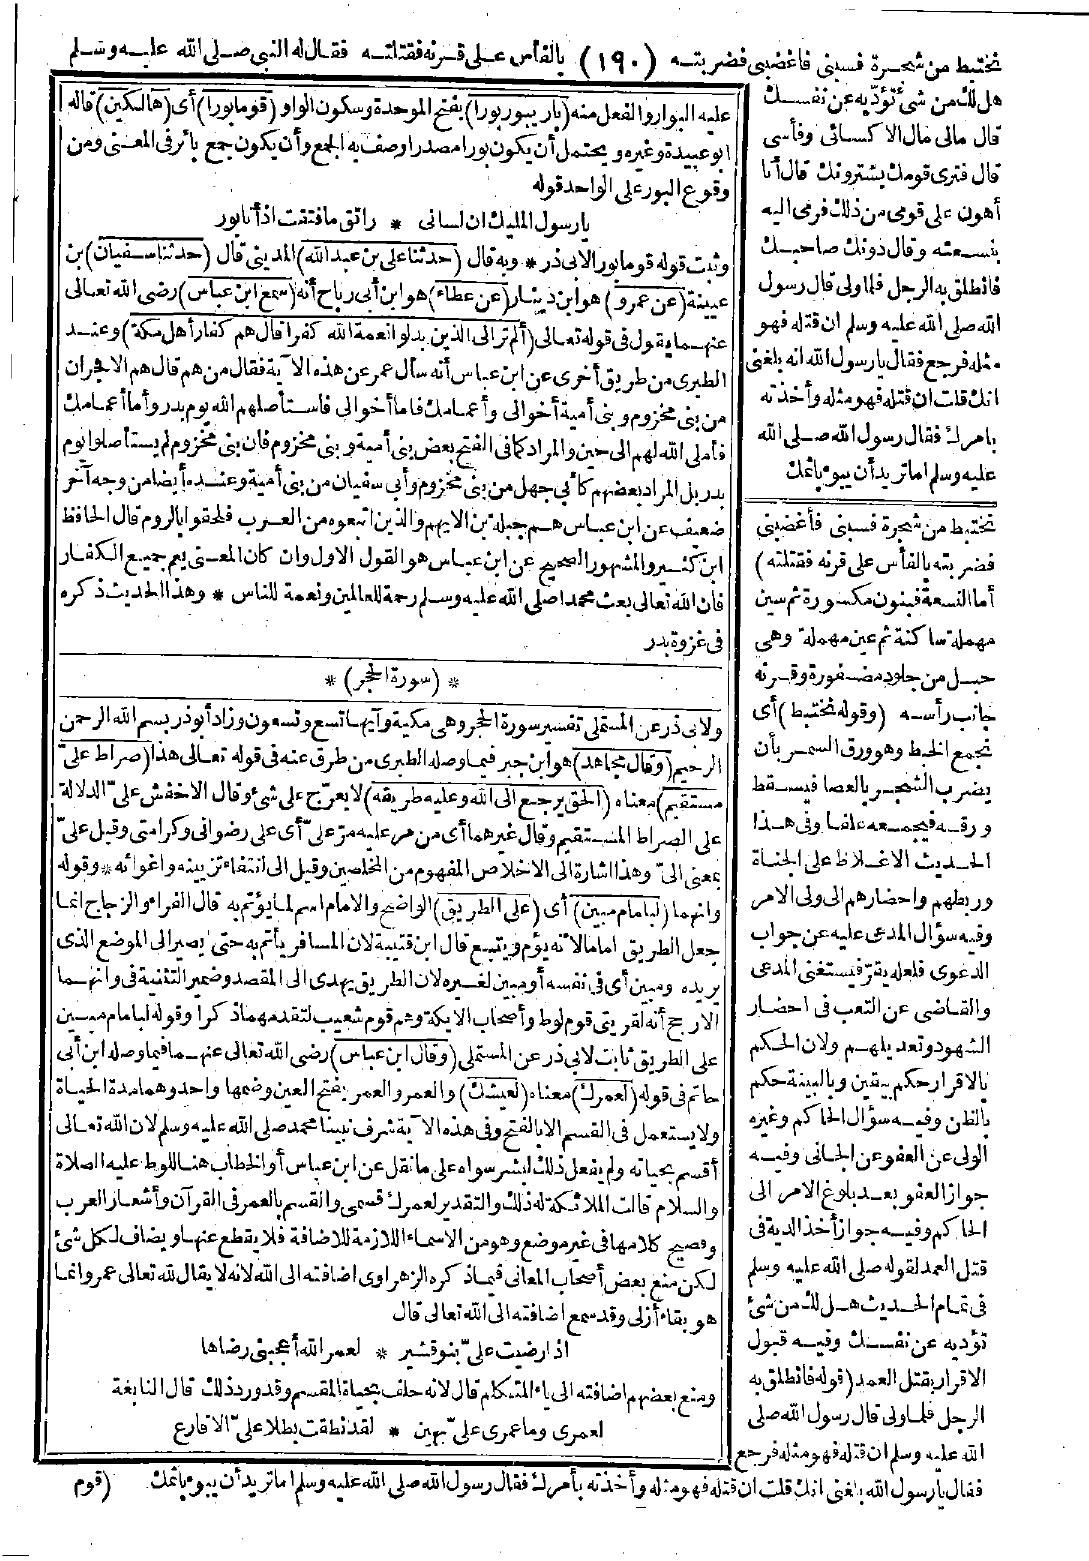 نختبط من شجرة فسبنى فاغضبنى فضربته (١٩٠) بالفأس على قرنه فقتلته فقال له النبى صلى الله عليه وسلم
هل لك من شئ تؤديه عن نفسك
قال مالى مال الا كسائى وفأسى
قال فترى قومك يشترونك قال أنا
أهون على قومى من ذلك فرمى اليه
بنسعته وقال دونك صاحبك
فانطلق به الرجل فلما ولى قال رسول
الله صلى الله عليه وسلم ان قتله فهو
مثله فرجع فقال يارسول الله انه بلغنى
انك قلت ان قتله فهو مثله وأخذته
بامرك فقال رسول الله صلى الله
عليه وسلم اما تريد أن يبوء باثمك
نختبط من شجرة فسبنى فأغضبنى
فضربته بالفأس على قرنه فقتلته)
أما النسعة فبنون مكسورة ثم سين
مهملة ساكنة ثم عين مهملة وهى
حبل من جلود مضفورة وقرنه
جانب رأسه (وقوله نختبط) أى
نجمع الخبط وهو ورق السمر بأن
يضرب الشجر بالعصا فيسقط
ورقه فيجمعه علفا وفى هذا
الحديث الاغلاظ على الجناة
وربطهم واحضارهم الى ولى الامر
وفيه سؤال المدعى عليه عن جواب
الدعوى فلعله يقر فيستغنى المدعى
والقاضى عن التعب فى احضار
الشهود وتعديلهم ولان الحكم
بالاقرار حكم بيقين وبالبينة حكم
بالظن وفيه سؤال الحاكم وغيره
الولى عن العفو عن الجانى وفيه
جواز العفو بعد بلوغ الامر الى
الحاكم وفيه جواز أخذ الدية فى
قتل العمد لقوله صلى الله عليه وسلم
فى تمام الحديث هل لك من شئ
تؤديه عن نفسك وفيه قبول
الاقرار بقتل العمد (قوله فانطلق به
الرجل فلما ولى قال رسول الله صلى
الله عليه وسلم ان قتله فهو مثله فرجع
فقال يارسول الله بلغنى انك قلت ان قتله فهو مثله وأخذته بأمرك فقال رسول الله صلى الله عليه وسلم اما تريد أن يبوء باثمك
عليه البوار والفعل منه (بار يبور بورا) بفتح الموحدة وسكون الواو (قوما بورا) أى (هالكين) قاله
ابو عبيدة وغيره ويحتمل أن يكون بورا مصدرا وصف به الجمع وأن يكون جمع بائر فى المعنى ومن
وقوع البور على الواحد قوله
يارسول المليك ان لسانى * راتق ما فتقت اذ أنا بور
وثبت قوله قوما بورا لابى ذر * وبه قال (حدثنا على بن عبد الله) المدينى قال (حدثنا سفيان) بن
عيينة (عن عمرو) هو ابن دينار (عن عطاء) هو ابن أبى رباح أنه (سمع ابن عباس) رضى الله تعالى
عنهما يقول فى قوله تعالى (ألم تر الى الذين بدلوا نعمة الله كفرا قال هم كفار أهل مكة) وعند
الطبرى من طريق أخرى عن ابن عباس أنه سأل عمر عن هذه الآية فقال من هم قال هم الافجران
من بنى مخزوم وبنى أمية أخوالى وأعمامك فاما أخوالى فاستأصلهم الله يوم بدر وأما أعمامك
فأملى الله لهم الى حين والمراد كما فى الفتح بعض بنى أمية وبنى مخزوم فان بنى مخزوم لم يستأصلوا يوم
بدر بل المراد بعضهم كأبى جهل من بنى مخزوم وأبى سفيان من بنى أمية وعنده أيضا من وجه آخر
ضعيف عن ابن عباس هم جبلة بن الايهم والذين اتبعوه من العرب فلحقوا بالروم قال الحافظ
ابن كثير والمشهور الصحيح عن ابن عباس هو القول الاول وان كان المعنى يعم جميع الكفار
فان الله تعالى بعث محمدا صلى الله عليه وسلم رحمة للعالمين ونعمة للناس * وهذا الحديث ذكره
فى غزوة بدر
* (سورة الحجر) *
ولابى ذر عن المستملى تفسير سورة الحجر وهى مكية وآيها تسع وتسعون وزاد أبو ذر بسم الله الرحمن
الرحيم (وقال مجاهد) هو ابن جبر فيما وصله الطبرى من طرق عنه فى قوله تعالى هذا (صراط على
مستقيم) معناه (الحق يرجع الى الله وعليه طريقه) لا يعرج على شئ وقال الاخفش على الدلالة
على الصراط المستقيم وقال غيرهما أى من مر عليه مر على أى على رضوانى وكرامتى وقيل على
بمعنى الى وهذا اشارة الى الاخلاص المفهوم من المخلصين وقيل الى انتفاء تزيينه واغوائه * وقوله
وانهما (لبامام مبين) أى (على الطريق) الواضح والامام اسم لما يؤتم به قال الفراء والزجاج انما
جعل الطريق اماما لانه يؤم ويتبع قال ابن قتيبة لان المسافر يأتم به حتى يصير الى الموضع الذى
يريده ومبين أى فى نفسه أو مبين لغيره لان الطريق يهدى الى المقصد وضمير التثنية فى وانهما
الارجح أنه لقريتى قوم لوط وأصحاب الايكة وهم قوم شعيب لتقدمهما ذكرا وقوله لبامام مبين
على الطريق ثابت لابى ذر عن المستملى (وقال ابن عباس) رضى الله تعالى عنهما فيما وصله ابن أبى
حاتم فى قوله (لعمرك) معناه (لعيشك) والعمر والعمر بفتح العين وضمها واحد وهما مدة الحياة
ولا يستعمل فى القسم الا بالفتح وفى هذه الآية شرف نبينا محمد صلى الله عليه وسلم لان الله تعالى
أقسم بحياته ولم يفعل ذلك لبشر سواه على ما نقل عن ابن عباس أو الخطاب هنا للوط عليه الصلاة
والسلام قالت الملائكة له ذلك والتقدير لعمرك قسمى والقسم بالعمر فى القرآن وأشعار العرب
وفصيح كلامها فى غير موضع وهو من الاسماء اللازمة للاضافة فلا يقطع عنها ويضاف لكل شئ
لكن منع بعض أصحاب المعانى فيما ذكره الزهراوى اضافته الى الله لانه لا يقال لله تعالى عمر وانما
هو بقاء أزلى وقد سمع اضافته الى الله تعالى قال
اذا رضيت على بنو قشير * لعمر الله أعجبنى رضاها
ومنع بعضهم اضافته الى ياء المتكلم قال لانه حلف بحياة المقسم وقد ورد ذلك قال النابغة
لعمرى وما عمرى على بهين * لقد نطقت بطلا على الاقارع
(قوم